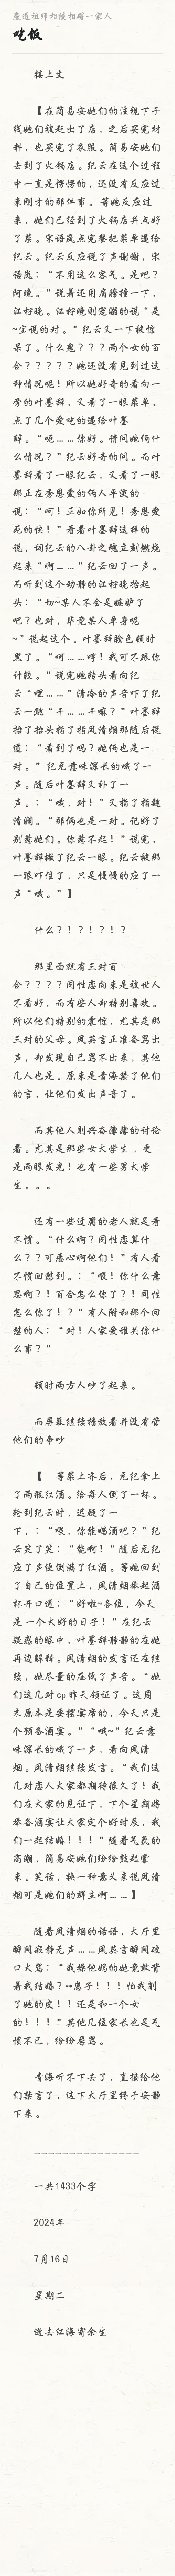 魔道祖师相缘相碍一家人
吃饭
接上文
【在简易安她们的注视下于
线她们被赶出了店，之后买完材
料，也买完了衣服。简易安她们
去到了火锅店。纪云在这个过程
中一直是愣愣的，还没有反应过
来刚才的那件事。等她反应过
来，她们已经到了火锅店并点好
了菜。宋语岚点完餐把菜单递给
纪云。纪云反应说了声谢谢，宋
语岚：“不用这么客气。是吧？
阿晚。”说着还用肩膀撞一下，
江柠晚。江柠晚则宠溺的说“是
~宝说的对。”纪云又一下被惊
呆了。什么鬼？？？两个女的百
合？？？？？她还没有见到过这
种情况呢！所以她好奇的看向一
旁的叶墨辩，又看了一眼菜单，
点了几个爱吃的递给叶墨
辩。“呃……你好。请问她俩什
么情况？”纪云好奇的问。而叶
墨辩看了一眼纪云，又看了一眼
那正在秀恩爱的俩人平淡的
说：“呵！正如你所见！秀恩爱
死的快！”看着叶墨辩这样的
说，词纪云的八卦之魂立刻燃烧
起来“啊……”纪云回了一声。
而听到这个动静的江柠晚抬起
头：“切~某人不会是嫉妒了
吧？也对，毕竟某人单身呢
~”说起这个。叶墨辩脸色顿时
黑了。“呵……哼！我可不跟你
计较。”说完她转头看向纪
云“嘿……”清冷的声音吓了纪
云一跳“干……干嘛？”叶墨辩
抬了抬头指了指凤清烟那随后说
道：“看到了吗？她俩也是一
对。”纪元意味深长的哦了一
声。随后叶墨辩又补了一
声。：“哦，对！”又指了指魏
清澜。“那俩也是一对。记好了
别惹她们。你惹不起！”说完，
叶墨辩撇了纪云一眼。纪云被那
一眼吓住了，只是慢慢的应了一
声“哦。”】
什么？！？！？！？
那里面就有三对百
合？？？？同性恋向来是被世人
不看好，而有些人却特别喜欢。
所以他们特别的震惊，尤其是那
三对的父母。凤英言正准备骂出
声，却发现自己骂不出来，其他
几人也是。原来是青海禁了他们
的言，让他们发出声音了。
而其他人则兴奋薄薄的讨论
着。尤其是那些女大学生，更
是两眼发光！也有一些男大学
生。。。
还有一些迂腐的老人就是看
不惯。“什么啊？同性恋算什
么？？可恶心啊他们！”有人看
不惯回怼到。：“喂！你什么意
思啊？！百合怎么你了？！同性
怎么你了！？”有人附和那个回
怼的人：“对！人家爱谁关你什
么事？”
顿时两方人吵了起来。
而屏幕继续播放着并没有管
他们的争吵
【 等菜上齐后，元纪拿上
了两瓶红酒。给每人倒了一杯。
轮到纪云时，迟疑了一
下，：“喂，你能喝酒吧？”纪
云笑了笑：“能啊！”随后元纪
应了声便倒满了红酒。等她回到
了自己的位置上，凤清烟举起酒
杯开口道：“好啦~各位，今天
是一个大好的日子！”在纪云
疑惑的眼中，叶墨辩静静的在她
再边解释。凤清烟的发言还在继
续，她尽量的压低了声音。“她
们这几对cp昨天领证了。这周
末原本是要摆宴席的，今天只是
个预备酒宴。”“哦~”纪云意
味深长的哦了一声，看向凤清
烟。凤清烟继续发言。“我们这
几对恋人大家都期待很久了！我
们在大家的见证下，下个星期将
举备酒宴让大家定个好时辰，我
们一起结婚！！！”随着气氛的
高潮，简易安她们纷纷鼓起掌
来。笑话，换一种意义来说凤清
烟可是她们的群主啊……】
随着凤清烟的话语，大厅里
瞬间寂静无声……凤英言瞬间破
口大骂：“我操他妈的她竟敢背
着我结婚？**惠子！！！怕我削
了她的皮！！还是和一个女
的！！！”其他几值家长也是气
愤不已，纷纷辱骂。
青海听不下去了，直接给他
们禁言了，这下大厅里终于安静
下来。
———————————————
一共1433个字
2024年
7月16日
星期二
逝去江海寄余生